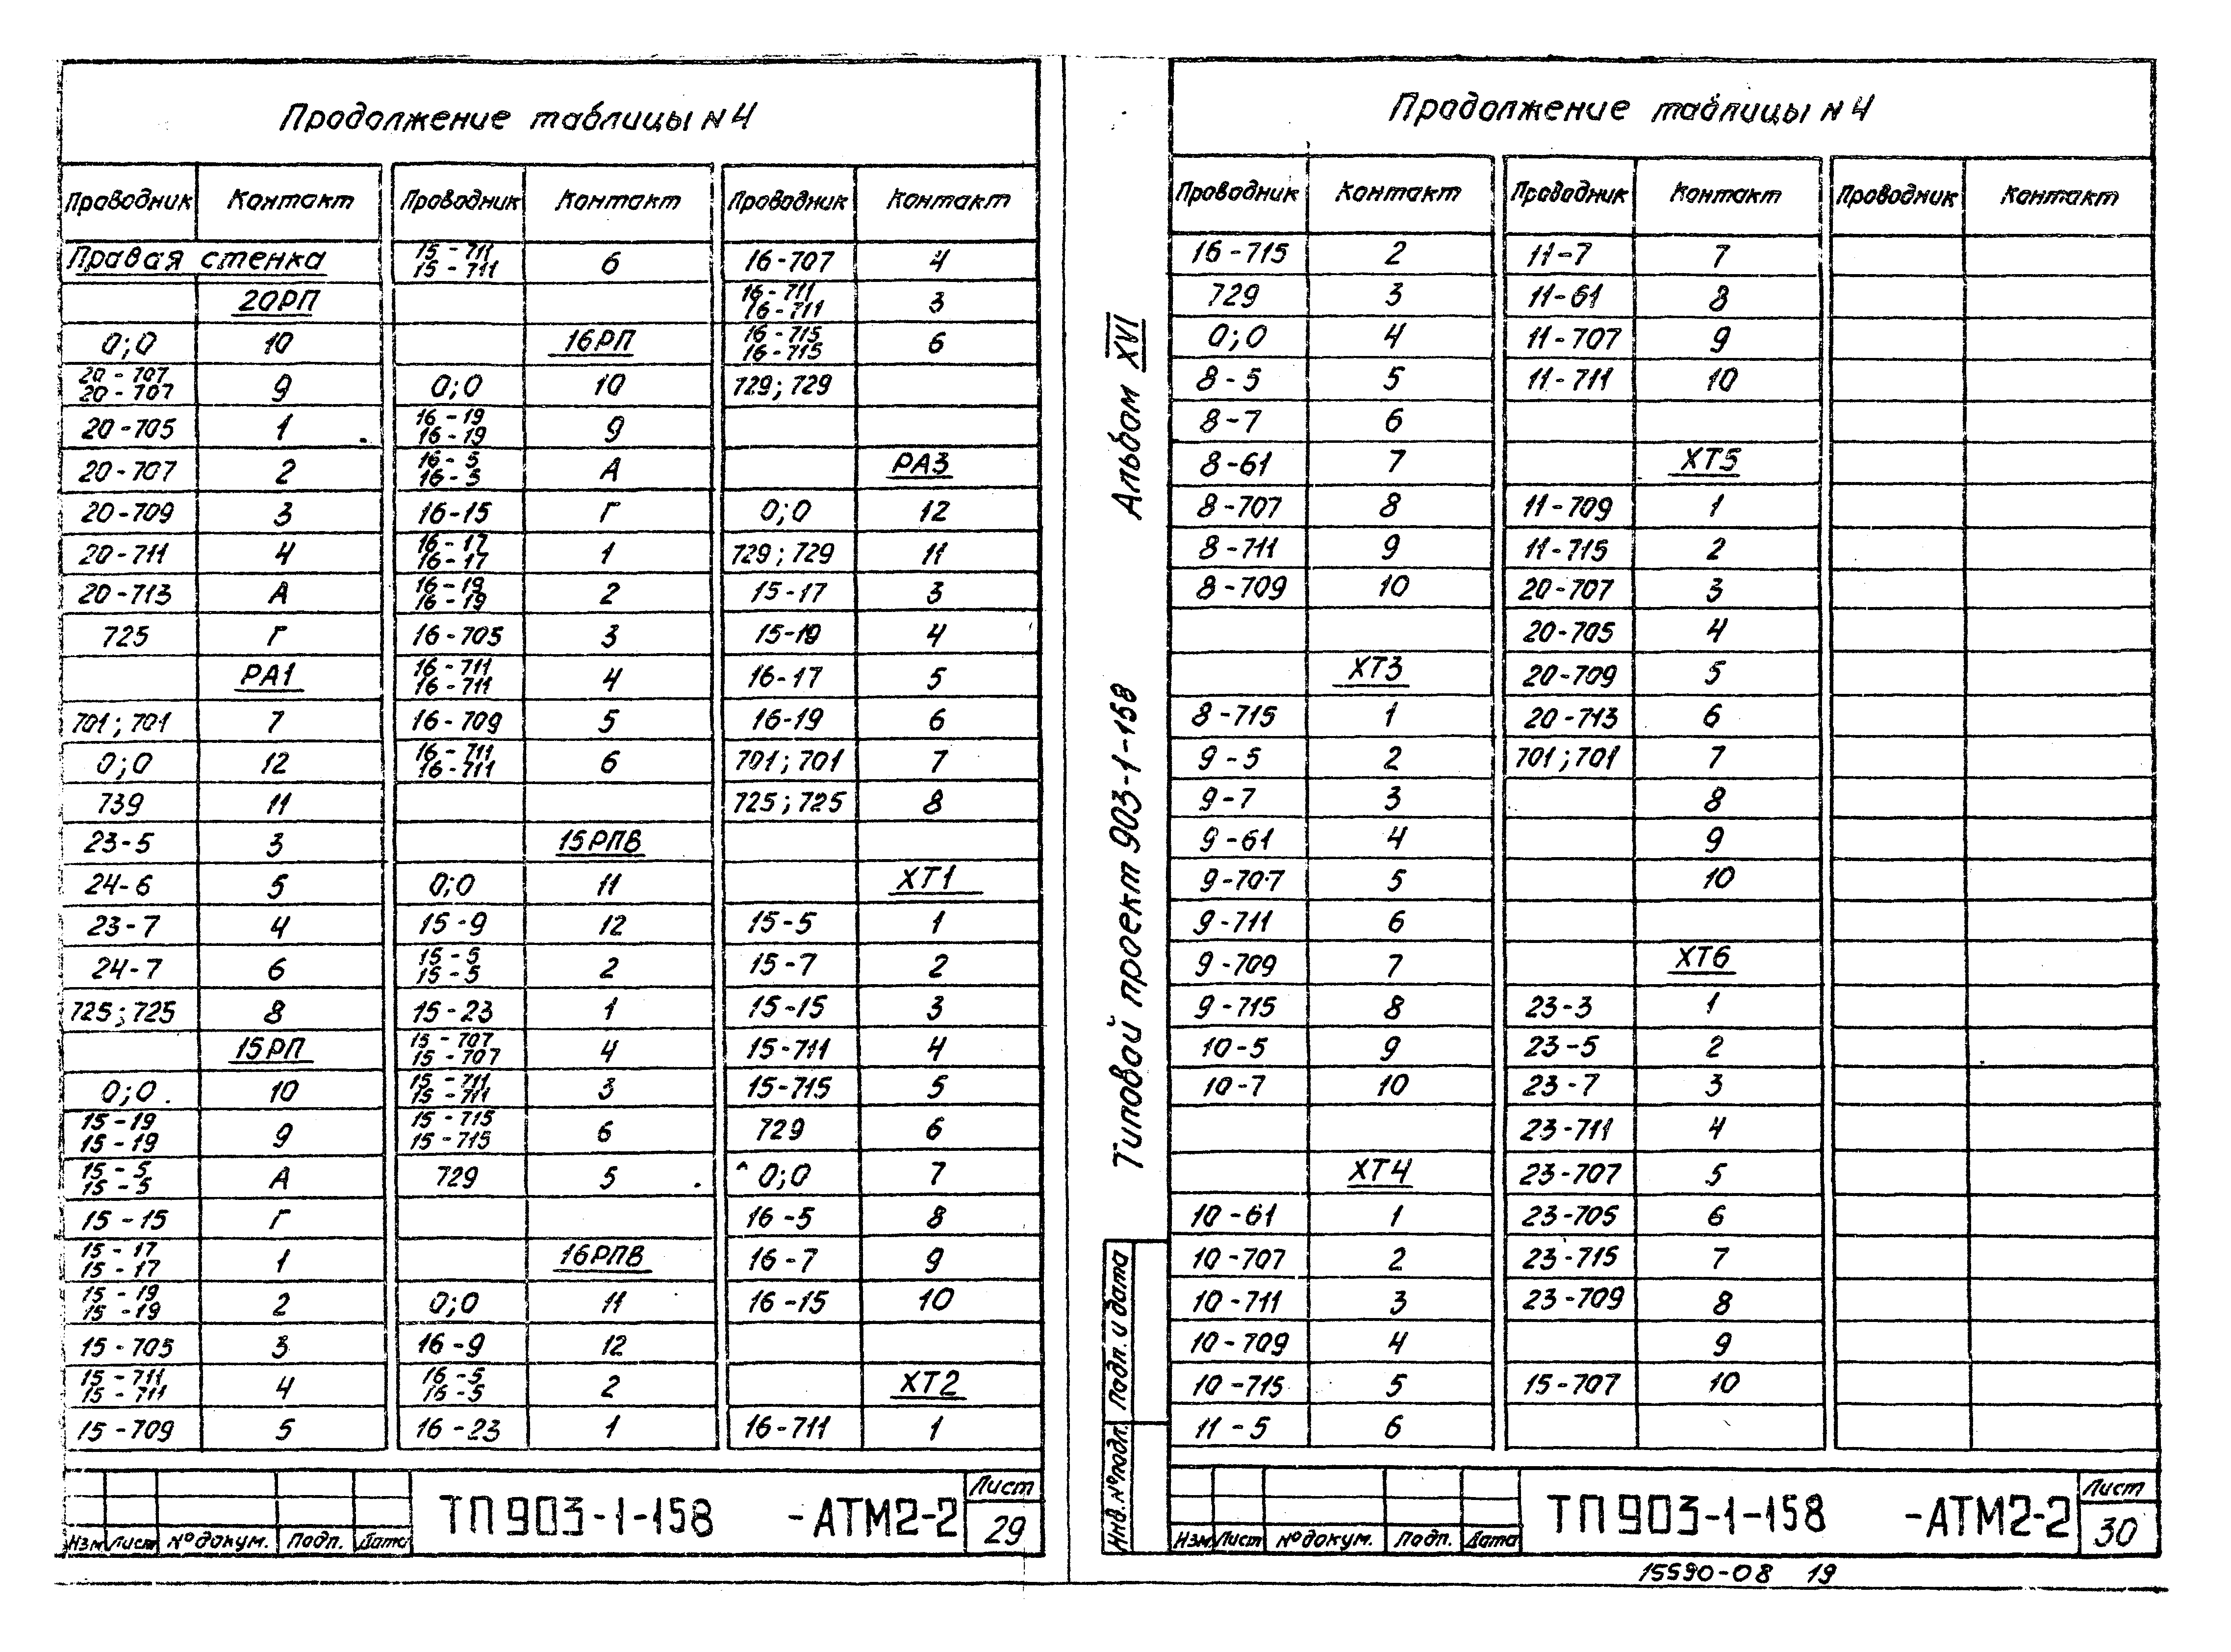 Продолжение таблицы N 4
Проводник Контакт Проводник Контакт Проводник Контакт
Правая стенка 15-711 15-711 6 16-707 4
20РП 16-711 16-711 3
0;0 10 16РП 16-715 16-715 6
20-707 20-707 9 0;0 10 729; 729
20-705 1 16-19 16-19 9
20-707 2 16-5 16-5 А РА3
20-709 3 16-15 Г 0;0 12
20-711 4 16-17 16-17 1 729; 729 11
20-713 А 16-19 16-19 2 15-17 3
725 Г 16-705 3 15-19 4
РА1 16-711 16-711 4 16-17 5
701; 701 7 16-709 5 16-19 6
0;0 12 16-711 16-711 6 701; 701 7
739 11 725; 725 8
23-5 3 15РПВ
24-6 5 0;0 11 ХТ1
23-7 4 15-9 12 15-5 1
24-7 6 15-5 15-5 2 15-7 2
725; 725 8 15-23 1 15-15 3
15РП 15-707 15-707 4 15-711 4
0;0 10 15-711 15-711 3 15-715 5
15-19 15-19 9 15-715 15-715 6 729 6
15-5 15-5 А 729 5 0;0 7
15-15 Г 16-5 8
15-17 15-17 1 16РПВ 16-7 9
15-19 15-19 2 0;0 11 16-15 10
15-705 3 16-9 12
15-711 15-711 4 16-5 16-5 2 ХТ2
15-709 5 16-23 1 16-711 1
Изм Лист № докум. Подп. Дата
ТП 903-1-158 -АТМ2-2
Лист
29
Альбом XVI
Типовой проект 903-1-158
Подп. и дата
Инв. № подл.
Продолжение таблицы N 4
Проводник Контакт Проводник Контакт Проводник Контакт
16-715 2 11-7 7
729 3 11-61 8
0;0 4 11-707 9
8-5 5 11-711 10
8-7 6
8-61 7 ХТ5
8-707 8 11-709 1
8-711 9 11-715 2
8-709 10 20-707 3
20-705 4
ХТ3 20-709 5
8-715 1 20-713 6
9-5 2 701; 701 7
9-7 3 8
9-61 4 9
9-707 5 10
9-711 6
9-709 7 ХТ6
9-715 8 23-3 1
10-5 9 23-5 2
10-7 10 23-7 3
23-711 4
ХТ4 23-707 5
10-61 1 23-705 6
10-707 2 23-715 7
10-711 3 23-709 8
10-709 4 9
10-715 5 15-707 10
11-5 6
Изм Лист № докум. Подп. Дата
ТП 903-1-158 -АТМ2-2
Лист
30
15590-08 19